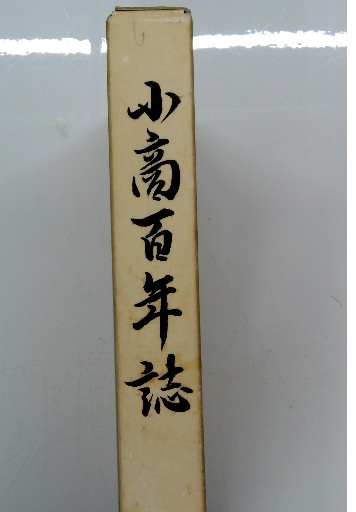 小商百年誌